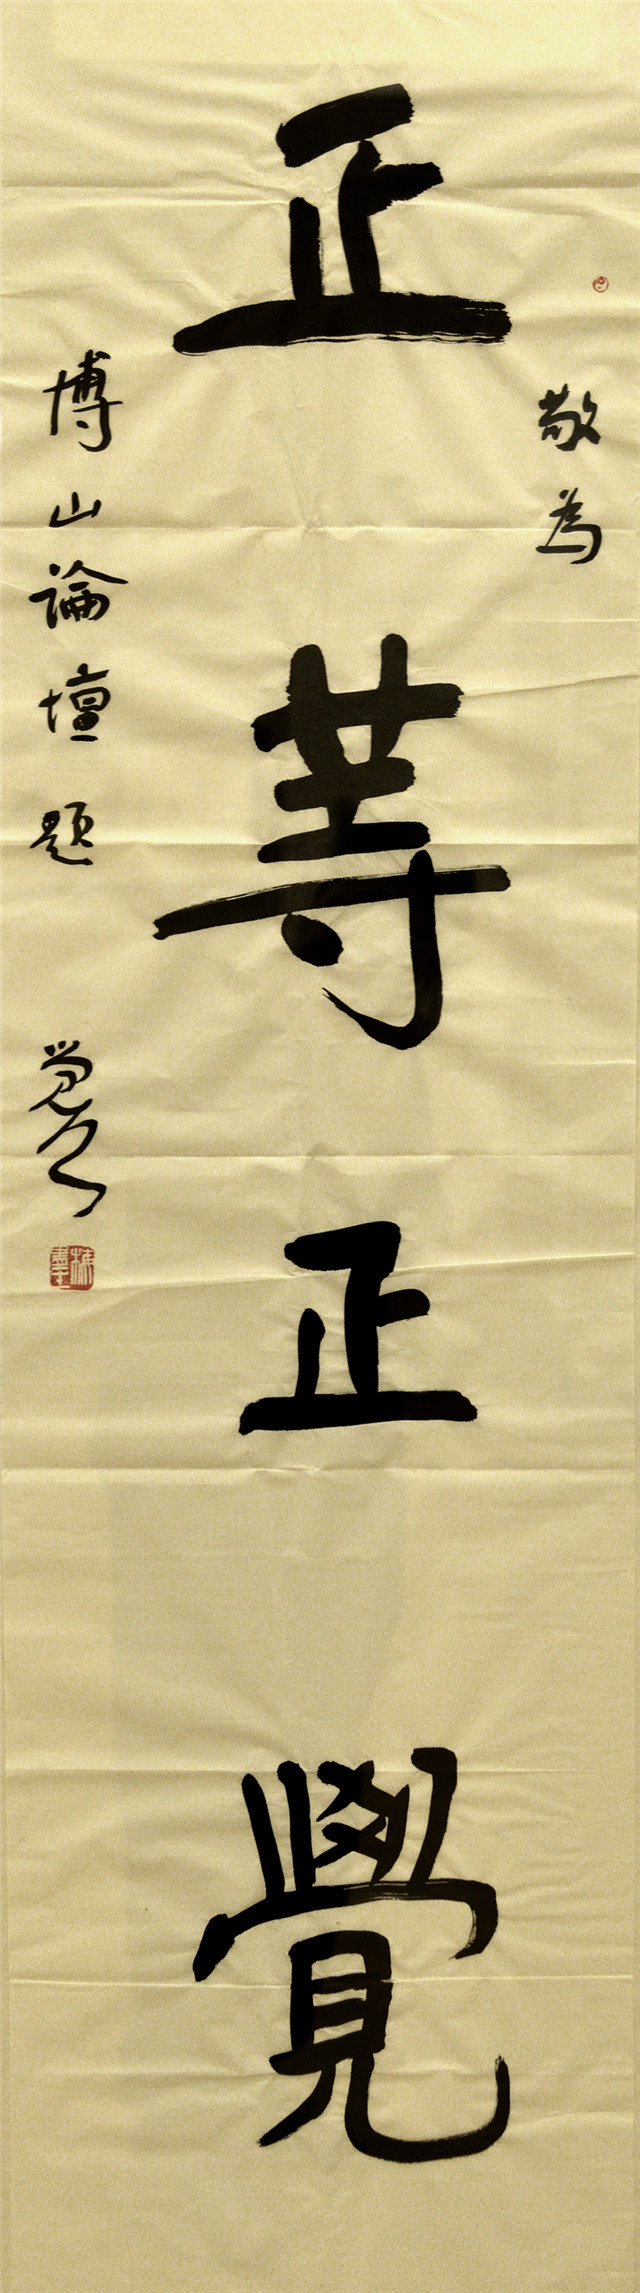 敬為
正等正覺
博山論壇題